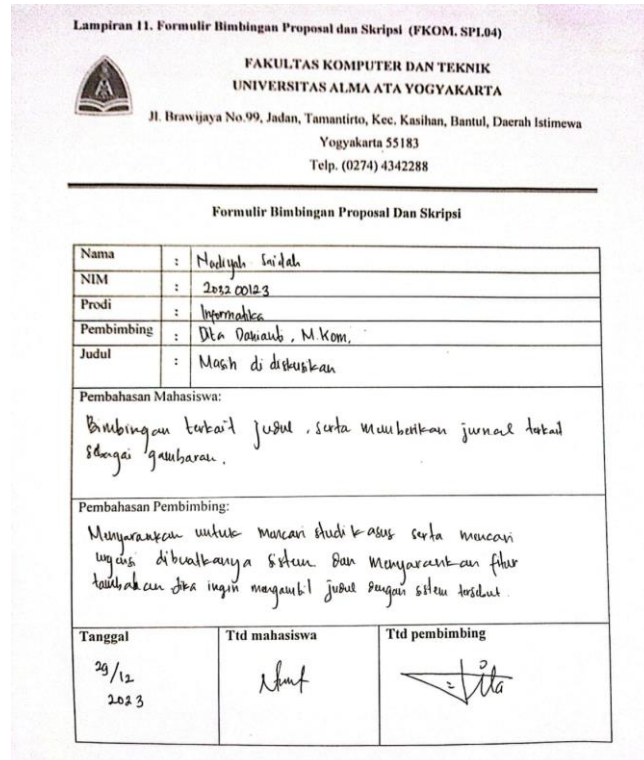 Lampiran 11. Formulir Bimbingan Proposal dan Skripsi (FKOM. SPI.04)
FAKULTAS KOMPUTER DAN TEKNIK
UNIVERSITAS ALMA ATA YOGYAKARTA
Jl. Brawijaya No.99, Jadan, Tamantirto, Kec. Kasihan, Bantul, Daerah Istimewa
Yogyakarta 55183
Telp. (0274) 4342288
Formulir Bimbingan Proposal Dan Skripsi
Nama : Nadiyah Saidah
NIM : 203200123
Prodi : Informatika
Pembimbing : Dita Danianti, M.Kom,
Judul : Masih di diskusikan
Pembahasan Mahasiswa:
Bimbingan terkait judul, serta memberikan jurnal terkait
sebagai gambaran.
Pembahasan Pembimbing:
Menyarankan untuk mencari studi kasus serta mencari
urgensi dibuatkanya sistem dan menyarankan fitur
tambahan jika ingin mengambil judul dengan sistem tersebut.
Tanggal Ttd mahasiswa Ttd pembimbing
29/12
2023